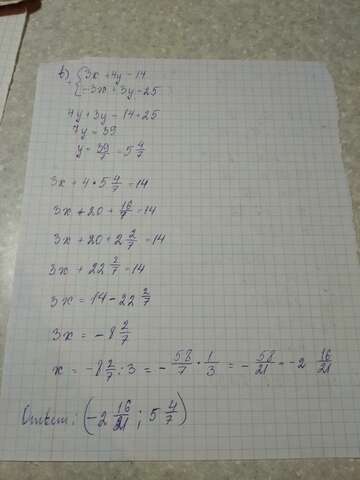 в) {3x + 4y = 14
{-3x + 3y = 25
4y + 3y = 14 + 25
7y = 39
y = 39/7 = 5 4/7
3x + 4 • 5 4/7 = 14
3x + 20 + 16/7 = 14
3x + 20 + 2 2/7 = 14
3x + 22 2/7 = 14
3x = 14 - 22 2/7
3x = -8 2/7
x = -8 2/7 : 3 = - 58/7 • 1/3 = - 58/21 = -2 16/21
Ответ: (-2 16/21 ; 5 4/7)